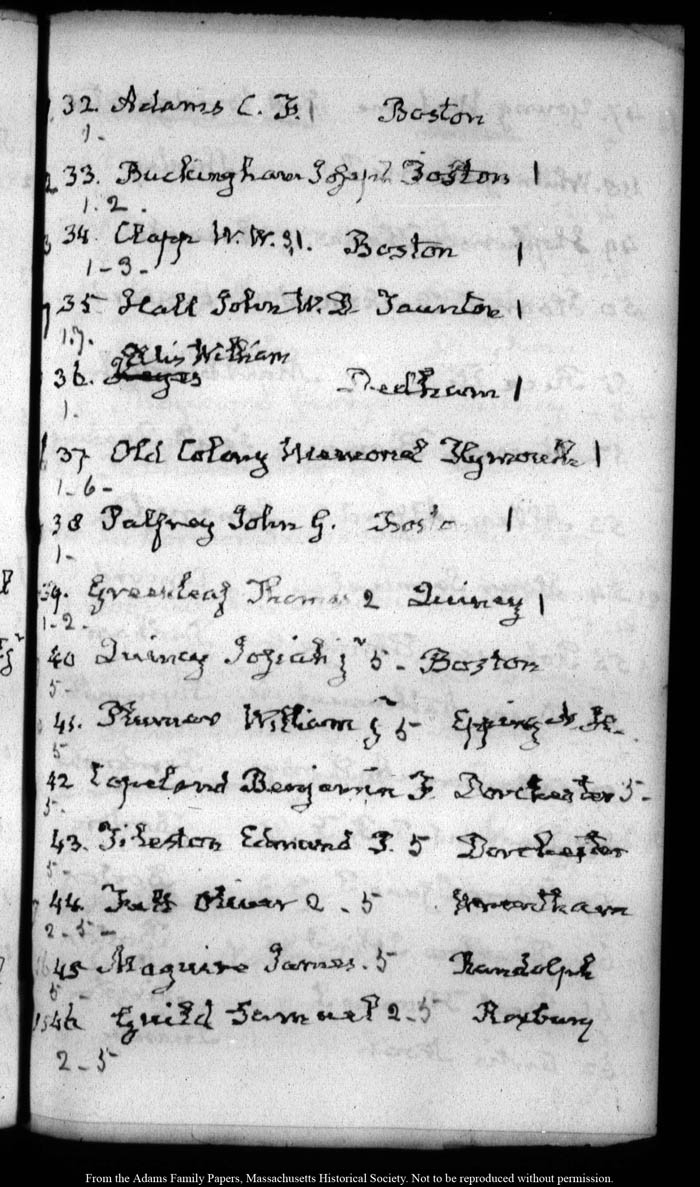 32. Adams C. F. 1 Boston
1-
33. Buckingham Joseph Boston 1
1. 2.
34. Clapp W. W. Boston 1
1-3-
35 Hall John W. D Taunton 1
1.7.
Ellis William
36. Keyes Dedham 1
1.
37 Old Colony Memorial Plymouth 1
1-6-
38 Palfrey John G. Bost 1
1-
39. Greenleaf Thomas 2 Quincy 1
1-2-
40 Quincy Josiah jr 5- Boston
5-
41. Plumer William jr 5 Epping N.H.
5
42 Copeland Benjamin F. Dorchester 5-
5-
43. Tileston Edmund P. 5 Dorchester
5
44. Oliver 2-5 Wrentham
2-5-
45 Maguire James. 5 Randolph
5-
46 Guild Samuel 2-5 Roxbury
2-5
From the Adams Family Papers, Massachusetts Historical Society. Not to be reproduced without permission.